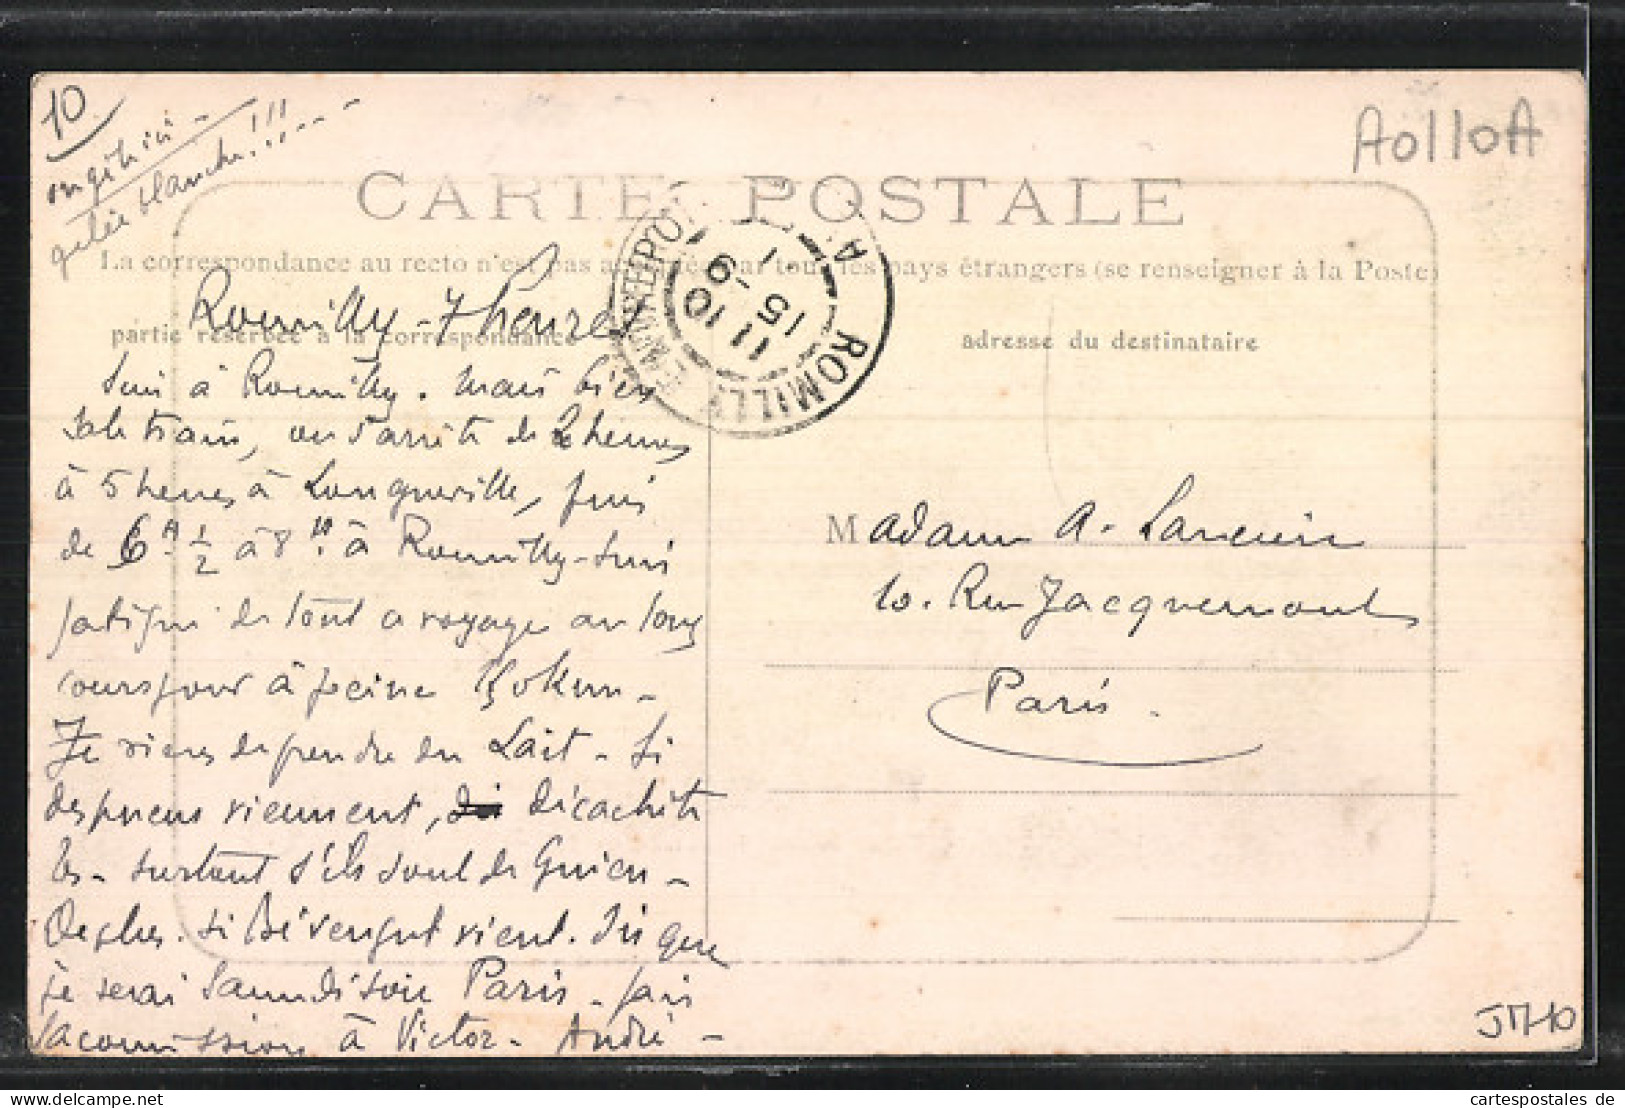 10
on gèle ici -
gelée blanche!!!---
A0110A
CARTE POSTALE
La correspondance au recto n'est pas a par tous les pays étrangers (se renseigner à la Poste)
Romilly - 7 heures
partie réservée à la correspondance
adresse du destinataire
ROMILLY
A
11
15
9
10
Suis à Romilly. mais bien
sale train, on s'arrête de 2 heures
à 5 heures à Longueville, puis
de 6 H 1/2 à 8 H à Romilly - suis
fatigué de tout ce voyage au long
cours pour à peine
Je viens de prendre du Lait - Si
des pneus viennent, décachète
les - surtout s'ils sont de
De plus. si vient. Dis que
je serai Samedi soir Paris - fais
la commission à Victor - André -
Madame A. Lancien
10. Rue Jacquemont
Paris.
JM10
cartespostales de
www.cartespostales.com